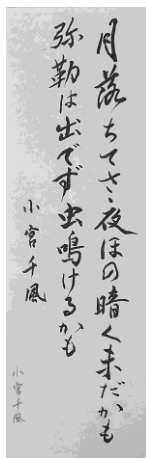 月落ちてさ夜ほの暗く未だかも
弥勒は出でず虫鳴けるかも
小宮千風
小宮千風